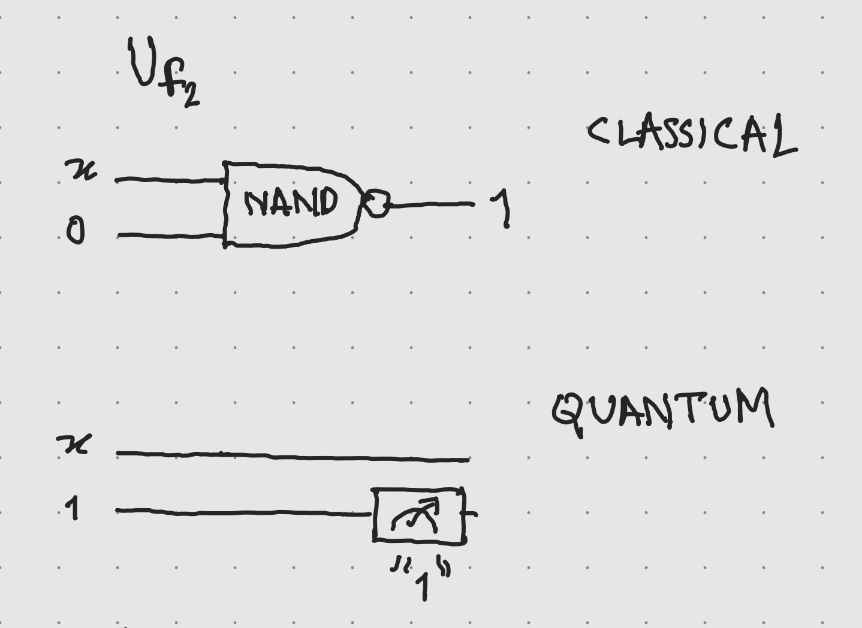 Uf2
CLASSICAL
x
NAND
1
0
QUANTUM
x
1
"1"